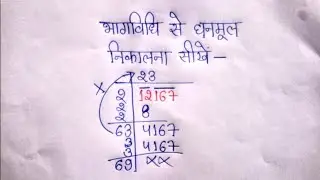 भागविधि से घनमूल
निकालना सीखें -
23
2 12167
2
2 8
63 4167
3
3 4167
69 ××
×